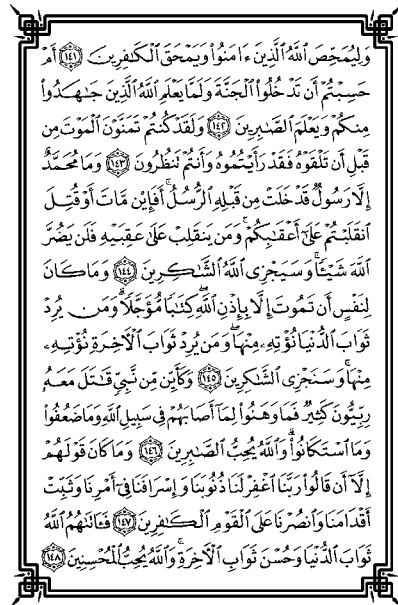 وَلِيُمَحِّصَ ٱللَّهُ ٱلَّذِينَ ءَامَنُوا۟ وَيَمْحَقَ ٱلْكَٰفِرِينَ ١٤١ أَمْ
حَسِبْتُمْ أَن تَدْخُلُوا۟ ٱلْجَنَّةَ وَلَمَّا يَعْلَمِ ٱللَّهُ ٱلَّذِينَ جَٰهَدُوا۟
مِنكُمْ وَيَعْلَمَ ٱلصَّٰبِرِينَ ١٤٢ وَلَقَدْ كُنتُمْ تَمَنَّوْنَ ٱلْمَوْتَ مِن
قَبْلِ أَن تَلْقَوْهُ فَقَدْ رَأَيْتُمُوهُ وَأَنتُمْ تَنظُرُونَ ١٤٣ وَمَا مُحَمَّدٌ
إِلَّا رَسُولٌ قَدْ خَلَتْ مِن قَبْلِهِ ٱلرُّسُلُ أَفَإِي۟ن مَّاتَ أَوْ قُتِلَ
ٱنقَلَبْتُمْ عَلَىٰٓ أَعْقَٰبِكُمْ وَمَن يَنقَلِبْ عَلَىٰ عَقِبَيْهِ فَلَن يَضُرَّ
ٱللَّهَ شَيْـًٔا وَسَيَجْزِى ٱللَّهُ ٱلشَّٰكِرِينَ ١٤٤ وَمَا كَانَ
لِنَفْسٍ أَن تَمُوتَ إِلَّا بِإِذْنِ ٱللَّهِ كِتَٰبًا مُّؤَجَّلًا وَمَن يُرِدْ
ثَوَابَ ٱلدُّنْيَا نُؤْتِهِۦ مِنْهَا وَمَن يُرِدْ ثَوَابَ ٱلْءَاخِرَةِ نُؤْتِهِۦ
مِنْهَا وَسَنَجْزِى ٱلشَّٰكِرِينَ ١٤٥ وَكَأَيِّن مِّن نَّبِىٍّ قَٰتَلَ مَعَهُۥ
رِبِّيُّونَ كَثِيرٌ فَمَا وَهَنُوا۟ لِمَآ أَصَابَهُمْ فِى سَبِيلِ ٱللَّهِ وَمَا ضَعُفُوا۟
وَمَا ٱسْتَكَانُوا۟ وَٱللَّهُ يُحِبُّ ٱلصَّٰبِرِينَ ١٤٦ وَمَا كَانَ قَوْلَهُمْ
إِلَّآ أَن قَالُوا۟ رَبَّنَا ٱغْفِرْ لَنَا ذُنُوبَنَا وَإِسْرَافَنَا فِىٓ أَمْرِنَا وَثَبِّتْ
أَقْدَامَنَا وَٱنصُرْنَا عَلَى ٱلْقَوْمِ ٱلْكَٰفِرِينَ ١٤٧ فَـَٔاتَىٰهُمُ ٱللَّهُ
ثَوَابَ ٱلدُّنْيَا وَحُسْنَ ثَوَابِ ٱلْءَاخِرَةِ وَٱللَّهُ يُحِبُّ ٱلْمُحْسِنِينَ ١٤٨